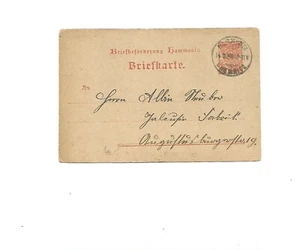 Briefbeförderung Hammonia
Briefkarte.
An
Herrn Albin Stauber
Jalousie Fabrik
Augustusburgerstr 19.